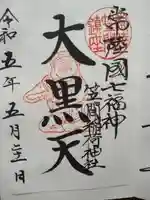 常陸國七福神
笠間稲荷神社
大黒天
令和五年五月二十一日